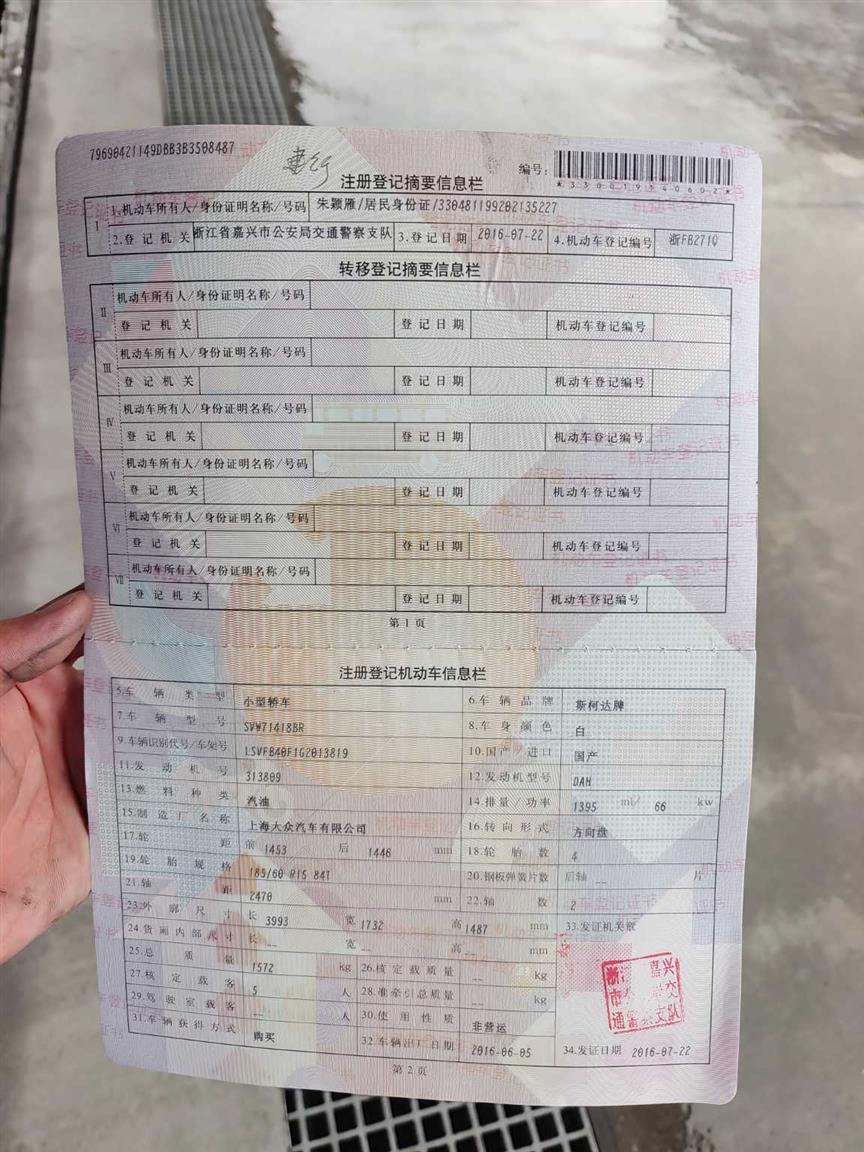 79690421149DBB3B3508487
编号:
*330019540602*
注册登记摘要信息栏
I 1.机动车所有人/身份证明名称/号码 朱颖雁/居民身份证/330481199202135227
2.登记机关 浙江省嘉兴市公安局交通警察支队 3.登记日期 2016-07-22 4.机动车登记编号 浙FB271Q
转移登记摘要信息栏
II 机动车所有人/身份证明名称/号码
登记机关 登记日期 机动车登记编号
III 机动车所有人/身份证明名称/号码
登记机关 登记日期 机动车登记编号
IV 机动车所有人/身份证明名称/号码
登记机关 登记日期 机动车登记编号
V 机动车所有人/身份证明名称/号码
登记机关 登记日期 机动车登记编号
VI 机动车所有人/身份证明名称/号码
登记机关 登记日期 机动车登记编号
VII 机动车所有人/身份证明名称/号码
登记机关 登记日期 机动车登记编号
第1页
注册登记机动车信息栏
5.车辆类型 小型轿车 6.车辆品牌 斯柯达牌
7.车辆型号 SVW71418BR 8.车身颜色 白
9.车辆识别代号/车架号 LSVFB40F1G2013819 10.国产/进口 国产
11.发动机号 313809 12.发动机型号 DAH
13.燃料种类 汽油 14.排量/功率 1395 ml/ 66 kw
15.制造厂名称 上海大众汽车有限公司 16.转向形式 方向盘
17.轮距 前 1453 后 1446 mm 18.轮胎数 4
19.轮胎规格 185/60 R15 84T 20.钢板弹簧片数 后轴 -- 片
21.轴距 2470 mm 22.轴数 2
23.外廓尺寸 长 3993 宽 1732 高 1487 mm 33.发证机关章
24.货厢内部尺寸 长 -- 宽 -- 高 -- mm
25.总质量 1572 kg 26.核定载质量 -- kg
27.核定载客 5 人 28.准牵引总质量 -- kg
29.驾驶室载客 -- 人 30.使用性质 非营运
31.车辆获得方式 购买 32.车辆出厂日期 2016-06-05 34.发证日期 2016-07-22
第2页